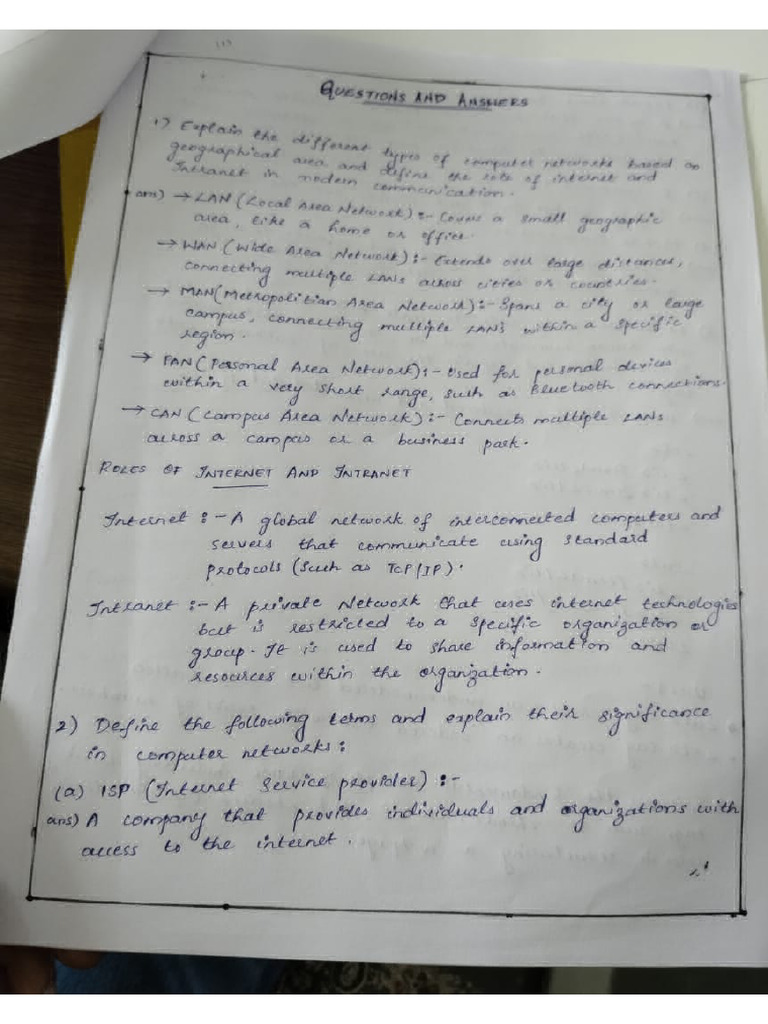 (1)
QUESTIONS AND ANSWERS
1) Explain the different types of computer networks based on
geographical area and define the role of internet and
Intranet in modern communication.
ans) → LAN (Local Area Network) :- Covers a small geographic
area, like a home or office.
→ WAN (Wide Area Network) :- Extends over large distances,
connecting multiple LANs across cities or countries.
→ MAN (Metropolitian Area Network) :- Spans a city or large
campus, connecting multiple LANs within a specific
region.
→ PAN (Personal Area Network) :- Used for personal devices
within a very short range, such as Bluetooth connections.
→ CAN (Campus Area Network) :- Connects multiple LANs
across a campus or a business park.
ROLES OF INTERNET AND INTRANET
Internet :- A global network of interconnected computers and
servers that communicate using standard
protocols (Such as TCP/IP).
Intranet :- A private Network that uses internet technologies
but is restricted to a specific organization or
group. It is used to share information and
resources within the organization.
2) Define the following terms and explain their significance
in computer networks:
(a) ISP (Internet Service provider) :-
ans) A company that provides individuals and organizations with
access to the internet.